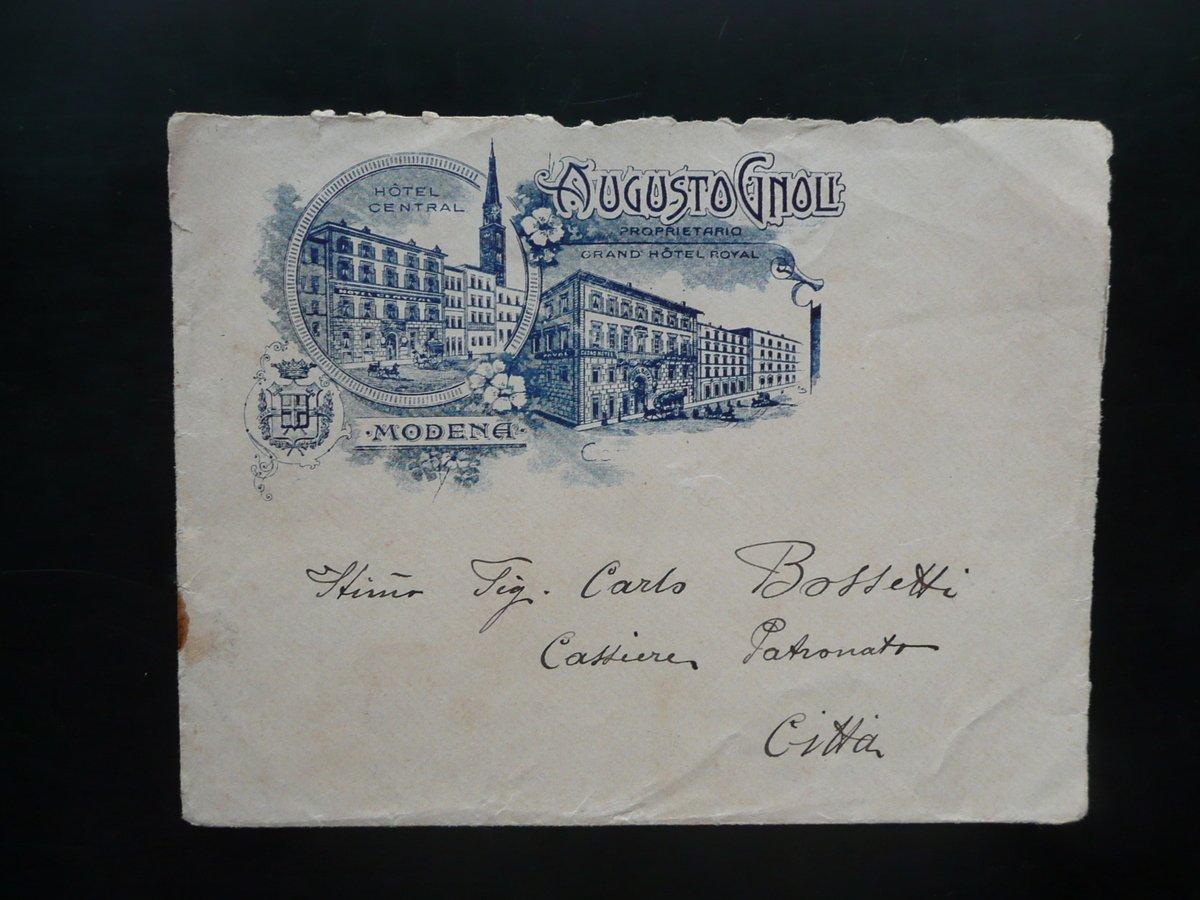 HÔTEL
CENTRAL
AUGUSTO GNOLI
PROPRIETARIO
GRAND HÔTEL ROYAL
ROYAL GRAND HOTEL
·MODENA·
Stimo Sig. Carlo Bossetti
Cassiere Patronato
Città